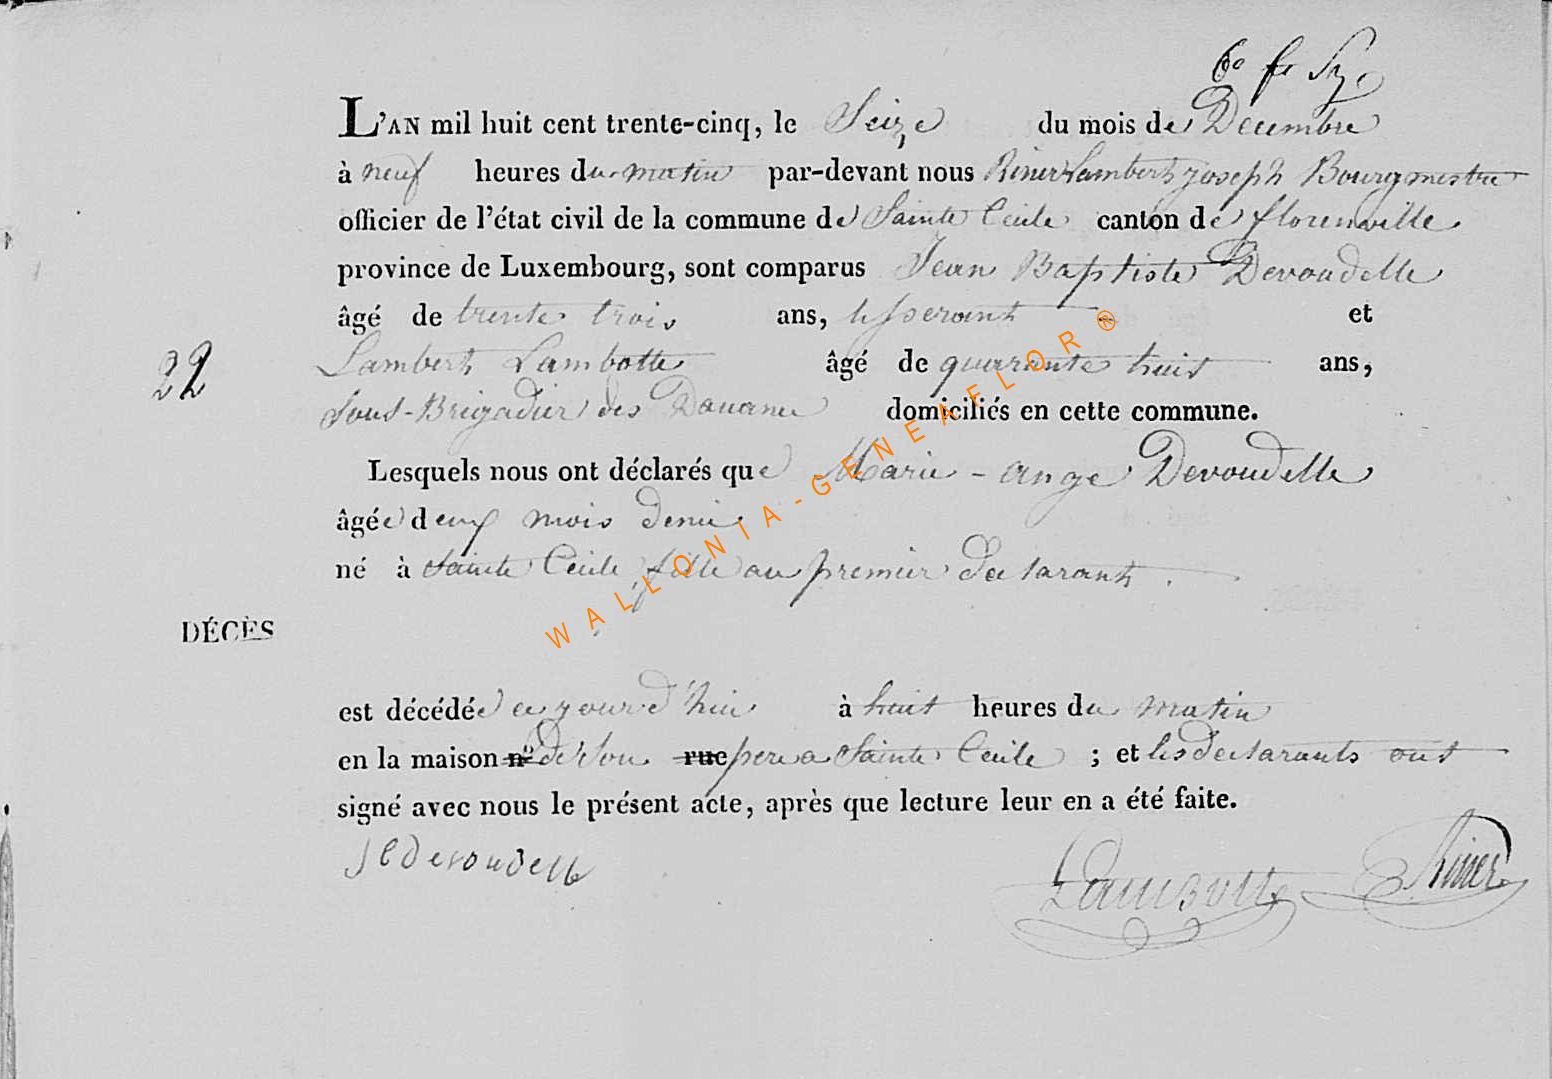 6e f Sze
L'AN mil huit cent trente-cinq, le Seize du mois de Decembre
à neuf heures du matin par-devant nous Riner Lambert joseph Bourgmestre
officier de l'état civil de la commune de Sainte Cecile canton de florenville
province de Luxembourg, sont comparus Jean Baptiste Devoudelle
âgé de trente trois ans, tisserant et
Lambert Lambotte âgé de quarante huit ans,
22
Sous-Brigadier des Douane domiciliés en cette commune.
Lesquels nous ont déclarés que Marie-ange Devoudelle
âgée deux mois demi
né à Sainte Cecile fille au premier declarant.
DÉCÈS
est décédée ce jourd'hui à huit heures du matin
en la maison n° de Son rue pere a Sainte Cecile ; et les declarants ont
signé avec nous le présent acte, après que lecture leur en a été faite.
Devoudelle Lambotte Riner
WALLONIA-GENEAFLOR®